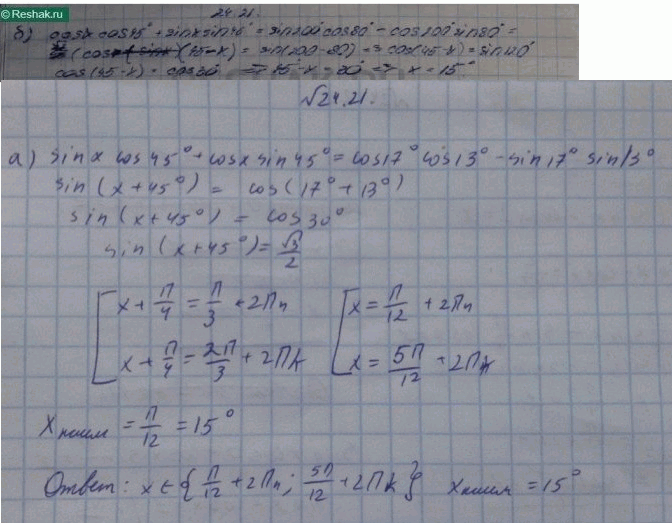 © Reshak.ru
24.21.
б) cos x cos 45° + sin x sin 45° = sin 200° cos 80° - cos 200° sin 80° =
(45-x) = sin(200-80) => cos(45-x) = sin 120°
cos(45-x) = cos 30 => 45-x = 30° => x = 15°
√24.21.
а) sin x cos 45° + cos x sin 45° = cos 17° cos 13° - sin 17° sin 13°
sin (x + 45°) = cos (17° + 13°)
sin (x + 45°) = cos 30°
sin (x + 45°) = √3/2
[ x + П/4 = П/3 + 2Пn [ x = П/12 + 2Пn
x + П/4 = 2П/3 + 2Пk x = 5П/12 + 2Пk
X наим = П/12 = 15°
Ответ: x ∈ {П/12 + 2Пn; 5П/12 + 2Пk} X наим = 15°